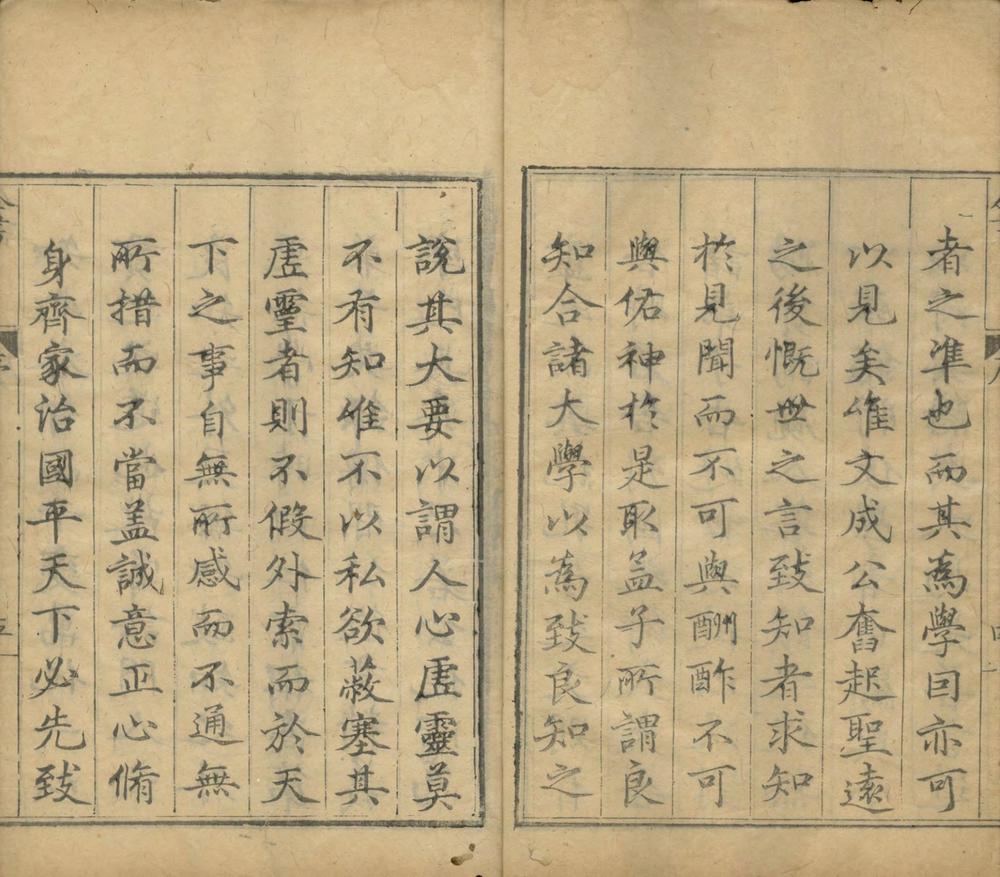 者之準也而其為學回亦可
以見矣惟文成公奮起聖遠
之後慨世之言致知者求知
於見聞而不可與酬酢不可
與佑神於是取孟子所謂良
知合諸大學以為致良知之
說其大要以謂人心虛靈莫
不有知惟不以私欲蔽塞其
虛靈者則不假外索而於天
下之事自無所感而不通無
所措而不當蓋誠意正心脩
身齊家治國平天下必先致